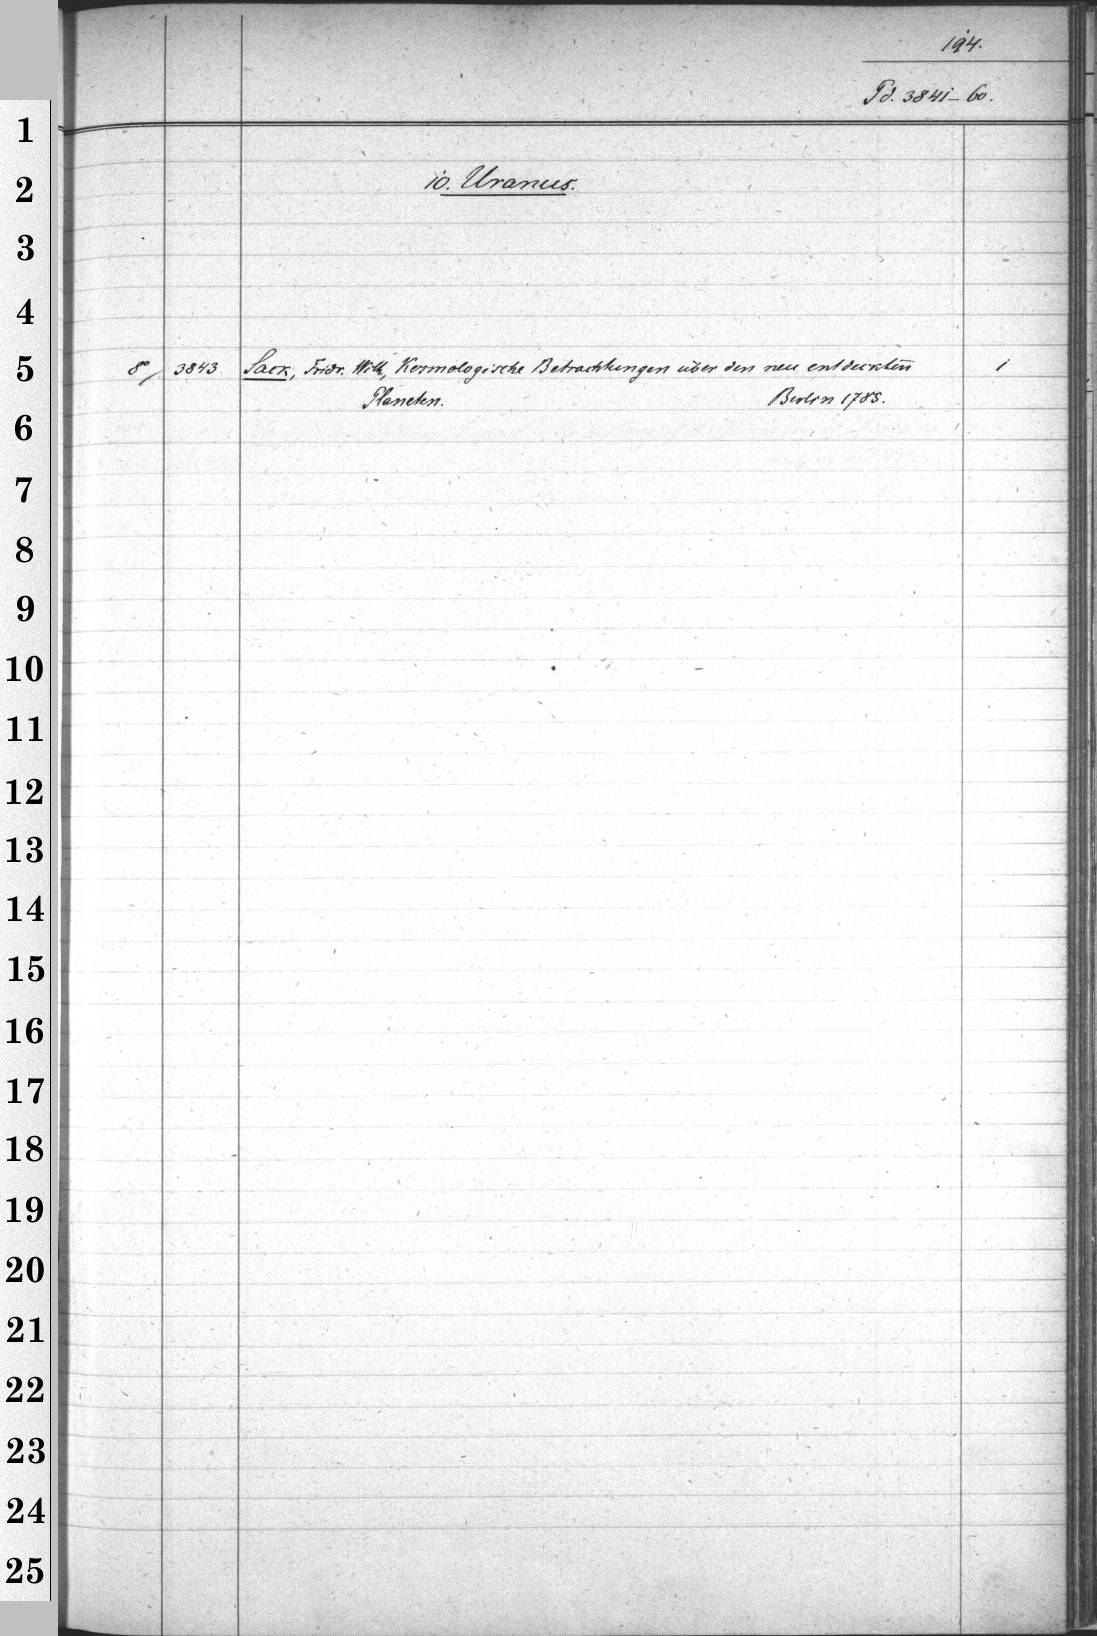 194.
Pd. 3841-60.
10. Uranus.
8° 3843 Sack, Fridr. Wilh, Kosmologische Betrachtungen über den neu entdeckten 1
Planeten. Berlin 1785.
1
2
3
4
5
6
7
8
9
10
11
12
13
14
15
16
17
18
19
20
21
22
23
24
25